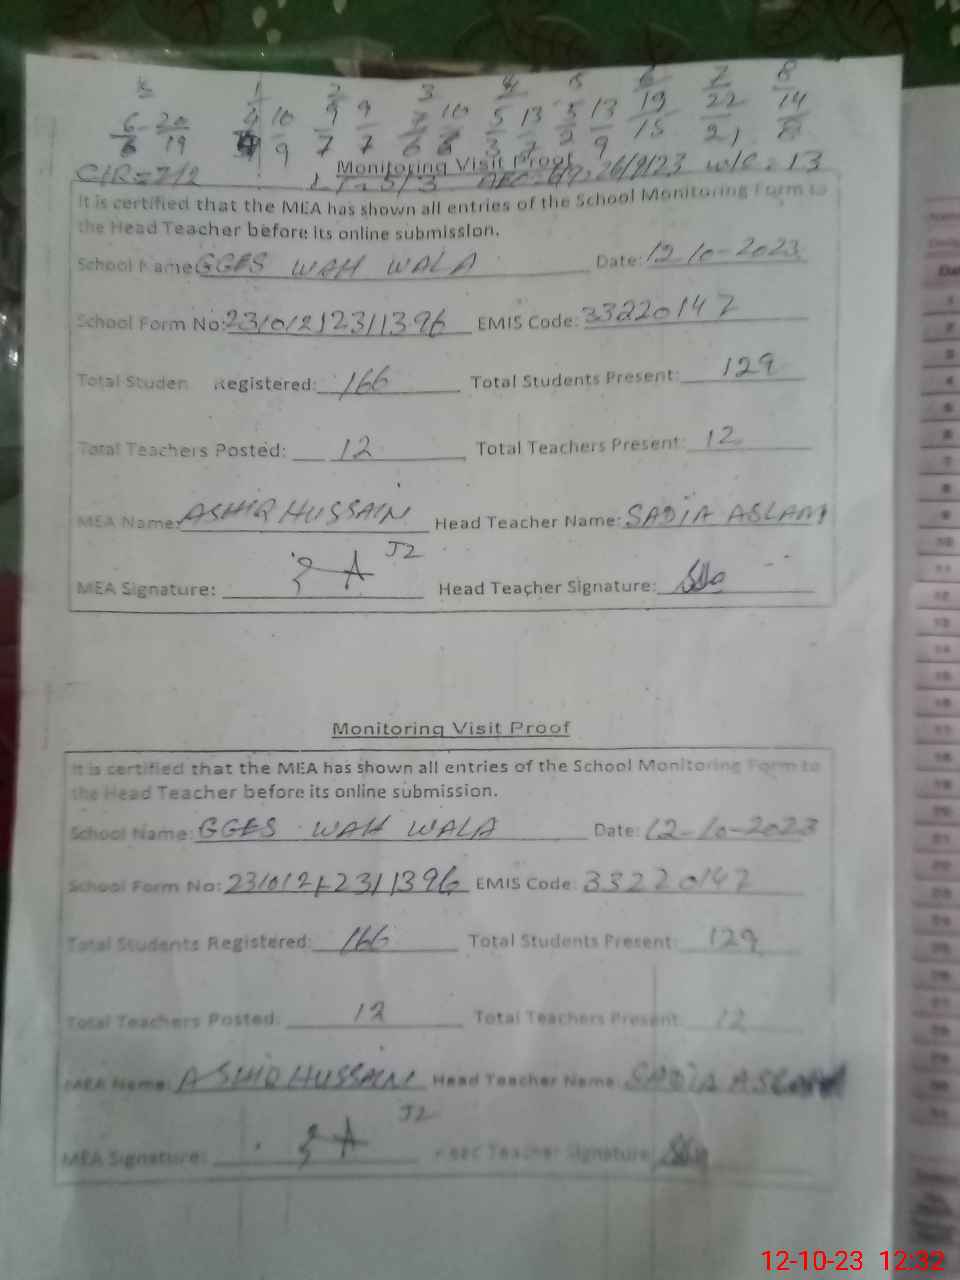 1 2 3 4 5 6 7 8
6 20 4 10 9 9 7 10 5 13 5 13 19 22 14
6 19 9 7 7 6 8 3 7 2 9 15 21 8
Monitoring Visit Proof
C/R = 7/2 26/9/23 w/c = 13
It is certified that the MEA has shown all entries of the School Monitoring Form to
the Head Teacher before its online submission.
School Name GGES WAH WALA Date: 12-10-2023
School Form No: EMIS Code: 33220147
Total Studen Registered: 166 Total Students Present: 129
Total Teachers Posted: 12 Total Teachers Present: 12
MEA Name: ASHIQ HUSSAIN Head Teacher Name: SADIA ASLAM
J2
MEA Signature: Head Teacher Signature:
Monitoring Visit Proof
It is certified that the MEA has shown all entries of the School Monitoring Form to
the Head Teacher before its online submission.
School Name: GGES WAH WALA Date: 12-10-2023
School Form No: EMIS Code: 33220147
Total Students Registered: 166 Total Students Present: 129
Total Teachers Posted: 12 Total Teachers Present: 12
MEA Name: ASHIQ HUSSAIN Head Teacher Name: SADIA ASLAM
J2
MEA Signature: Head Teacher Signature:
12-10-23 12:32